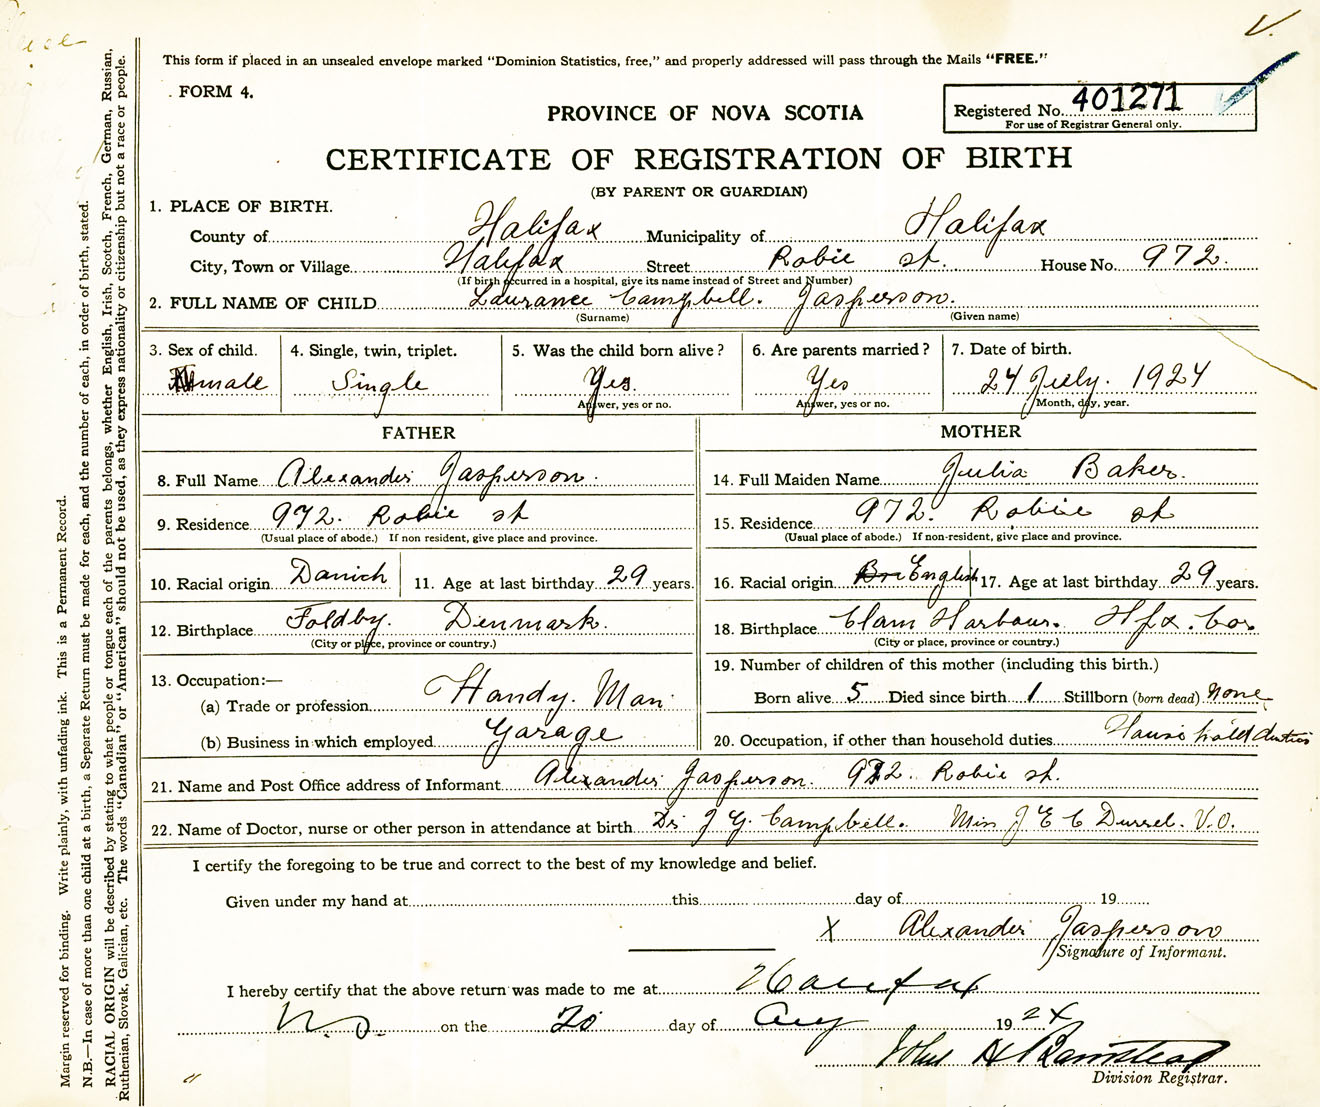 V.
This form if placed in an unsealed envelope marked "Dominion Statistics, free," and properly addressed will pass through the Mails "FREE."
FORM 4.
Registered No. 401271
For use of Registrar General only.
PROVINCE OF NOVA SCOTIA
CERTIFICATE OF REGISTRATION OF BIRTH
(BY PARENT OR GUARDIAN)
1. PLACE OF BIRTH.
County of Halifax Municipality of Halifax
City, Town or Village Halifax Street Robie st. House No. 972.
(If birth occurred in a hospital, give its name instead of Street and Number)
2. FULL NAME OF CHILD Laurance Campbell. Jasperson.
(Surname) (Given name)
3. Sex of child. 4. Single, twin, triplet. 5. Was the child born alive? 6. Are parents married? 7. Date of birth.
male Single Yes. Yes 24 July. 1924
Answer, yes or no. Answer, yes or no. Month, day, year.
FATHER MOTHER
8. Full Name Alexander Jasperson. 14. Full Maiden Name Julia Baker.
9. Residence 972. Robie st 15. Residence 972. Robie st
(Usual place of abode.) If non resident, give place and province. (Usual place of abode.) If non-resident, give place and province.
10. Racial origin Danich 11. Age at last birthday 29 years. 16. Racial origin Bri English 17. Age at last birthday 29 years.
12. Birthplace Foldby. Denmark. 18. Birthplace Clam Harbour. Hfx. Co.
(City or place, province or country.) (City or place, province or country.)
13. Occupation:— 19. Number of children of this mother (including this birth.)
(a) Trade or profession Handy. Man Born alive 5 Died since birth 1 Stillborn (born dead) None
(b) Business in which employed Garage 20. Occupation, if other than household duties House hold duties
21. Name and Post Office address of Informant Alexander Jasperson. 972. Robie st.
22. Name of Doctor, nurse or other person in attendance at birth Dr J G Campbell. Miss J E C V.O.
I certify the foregoing to be true and correct to the best of my knowledge and belief.
Given under my hand at this day of 19
X Alexander Jasperson
Signature of Informant.
I hereby certify that the above return was made to me at Halifax
N.S. on the 20 day of Aug 1924
John H
Division Registrar.
Margin reserved for binding. Write plainly, with unfading ink. This is a Permanent Record.
N.B.—In case of more than one child at a birth, a Separate Return must be made for each, and the number of each, in order of birth, stated.
RACIAL ORIGIN will be described by stating to what people or tongue each of the parents belongs, whether English, Irish, Scotch, French, German, Russian,
Ruthenian, Slovak, Galician, etc. The words "Canadian" or "American" should not be used, as they express nationality or citizenship but not a race or people.